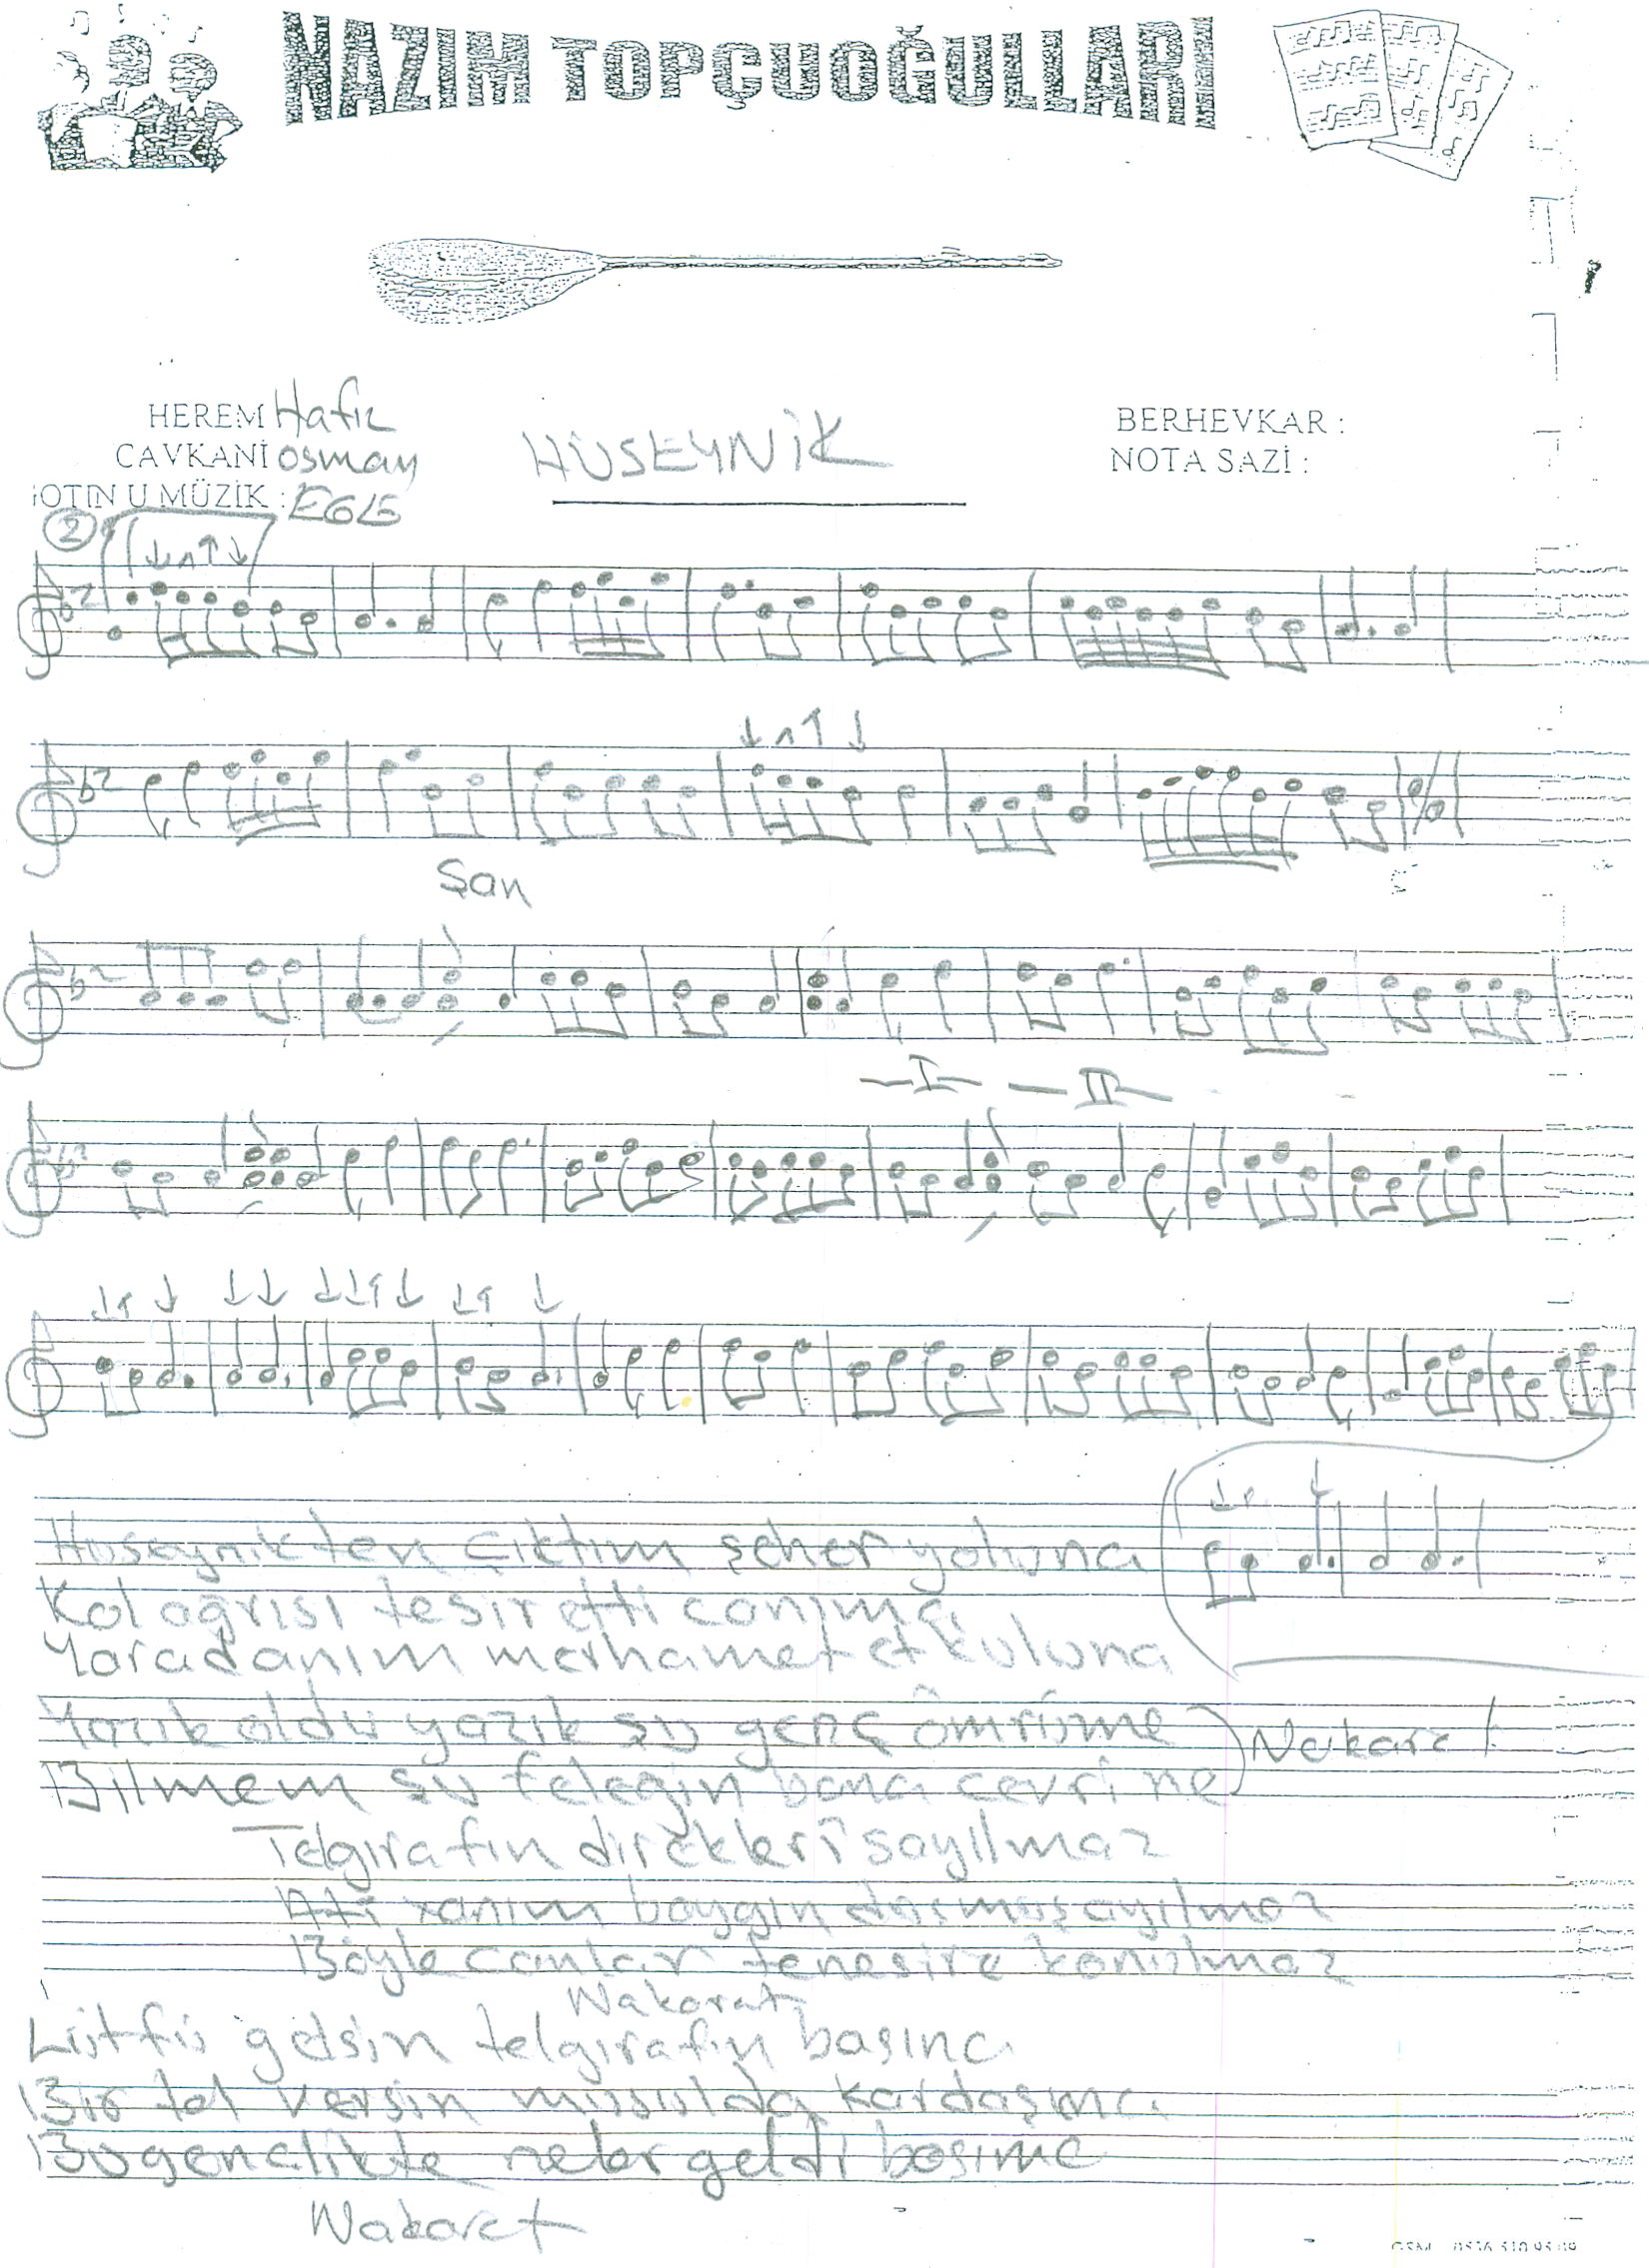 NAZIM TOPÇUOĞULLARI
HEREM Hafız
ÇAVKANİ Osman
NOTIN U MÜZİK : EGE
HÜSEYNİK
BERHEVKAR :
NOTA SAZİ :
2
Şan
I II
Hüseynikten çıktım şeher yoluna
Kol ağrısı tesir etti canıma
Yaradanım merhamet et kuluna
Yazık oldu yazık şu genç ömrüme
Bilmem şu feleğin bana cevri ne
Nakarat
Telgırafın direkleri sayılmaz
Ati xanım baygın düşmüş ayılmaz
Böyle canlar teneşire konulmaz
Nakarat
Lütfü gelsin telgırafın başına
Bir tel versin musulda kardaşıma
Bu gençlikte neler geldi başıma
Nakarat
GSM